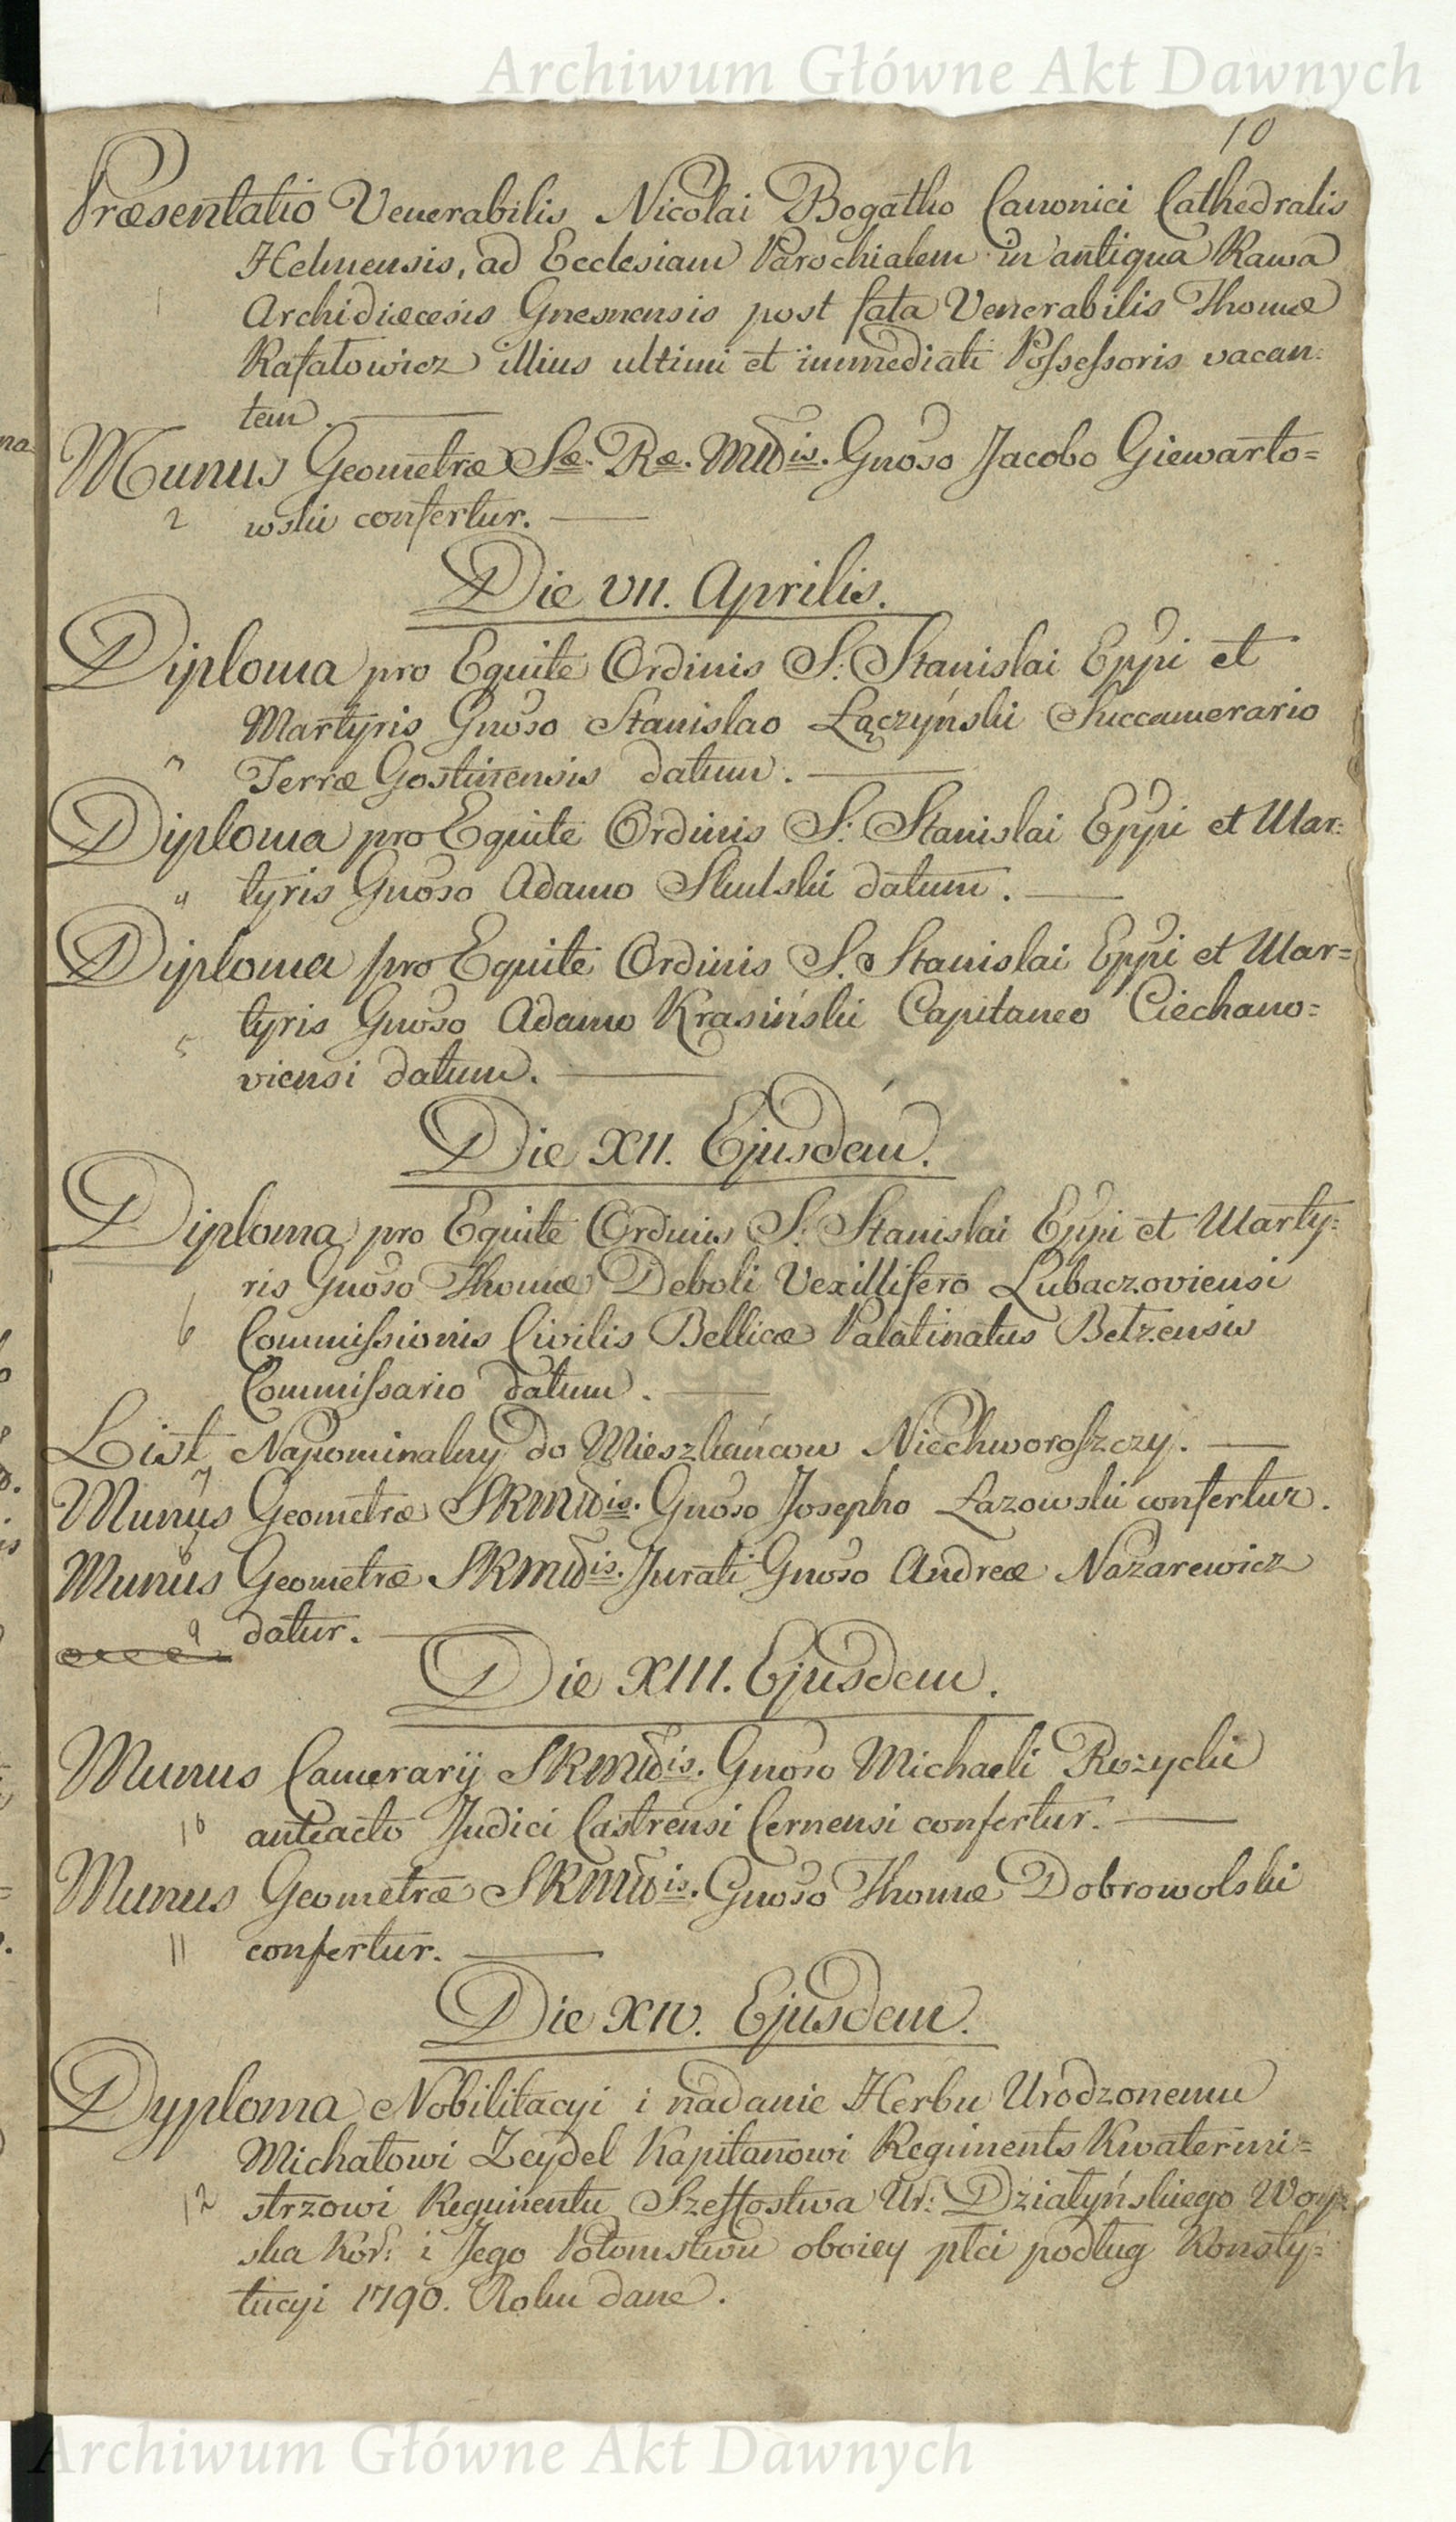 Archiwum Główne Akt Dawnych
10
Præsentatio Venerabilis Nicolai Bogatko Canonici Cathedralis
Helmensis, ad Ecclesiam Parochialem in antiqua Rawa
1 Archidiæcesis Gnesnensis post fata Venerabilis Thomæ
Rafałowicz illius ultimi et immediati Possessoris vacan:
tem.
Munus Geometræ Sæ. Ræ. Mtdis. Gnoso Jacobo Giewarto=
2 wski confertur.
Die VII. Aprilis.
Diploma pro Equite Ordinis S: Stanislai Eppi et
Martyris Gnoso Stanislao Łączyński Succamerario
3 Terræ Gostinensis datum.
Diploma pro Equite Ordinis S: Stanislai Eppi et Mar:
4 tyris Gnoso Adamo datum.
Diploma pro Equite Ordinis S. Stanislai Eppi et Mar=
tyris Gnoso Adamo Krasiński Capitaneo Ciechano=
5 viensi datum.
Die XII. Ejusdem.
Diploma pro Equite Ordinis S: Stanislai Eppi et Marty:
ris Gnoso Thomæ Deboli Vexillifero Lubaczoviensi
6 Commissionis Civilis Bellicæ Palatinatus Betzensis
Commissario datum.
List Napominalny do Mieszkańcow Niechworoszczy.
7
Munus Geometræ SRMtdis. Gnoso Josepho Łazowski confertur.
8
Munus Geometræ SRMtdis. Jurati Gnoso Andreæ Nazarewicz
9 datur.
Die XIII. Ejusdem.
Munus Camerarij SRMtdis. Gnoso Michaeli Rozycki
10 anteacto Judici Castrensi Cernensi confertur.
Munus Geometræ SRMtdis. Gnoso Thomæ Dobrowolski
11 confertur.
Die XIV. Ejusdem.
Dyploma Nobilitacyi i nadanie Herbu Urodzonemu
Michałowi Zeydel Kapitanowi Regiments Kwatermi=
12 strzowi Regimentu Szeffostwa Ur: Działyńskiego Woy:
ska Kor: i Jego Potomstwu oboiey płci podług Konsty=
tucyi 1790. Roku dane.
Archiwum Główne Akt Dawnych